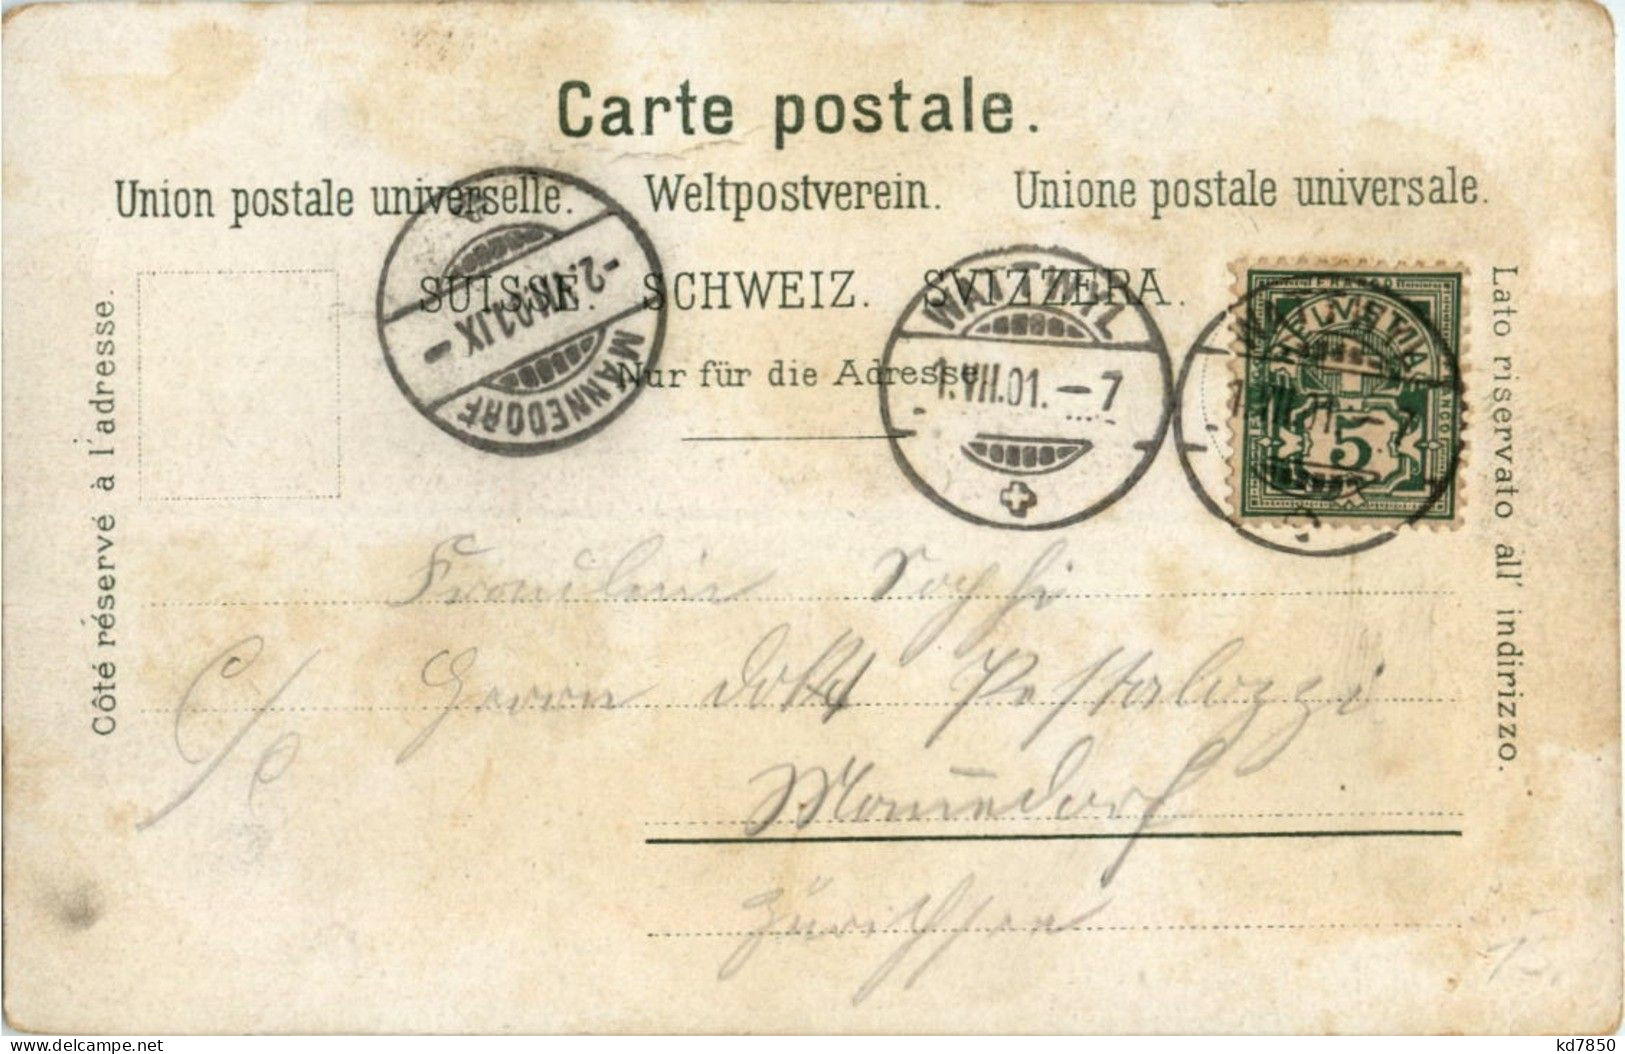 Carte postale.
Union postale universelle. Weltpostverein. Unione postale universale.
SUISSE. SCHWEIZ. SVIZZERA.
Nur für die Adresse.
Côté réservé à l'adresse.
Lato riservato all' indirizzo.
MÄNNEDORF
-2.VII.01.IX-
WATTWIL
1.VII.01.-7
FRANCO
HELVETIA
5
Fräulein Sophi
C/o Herrn Dokt Pestalozzi
Mannedorf
Zürichsee
kd7850